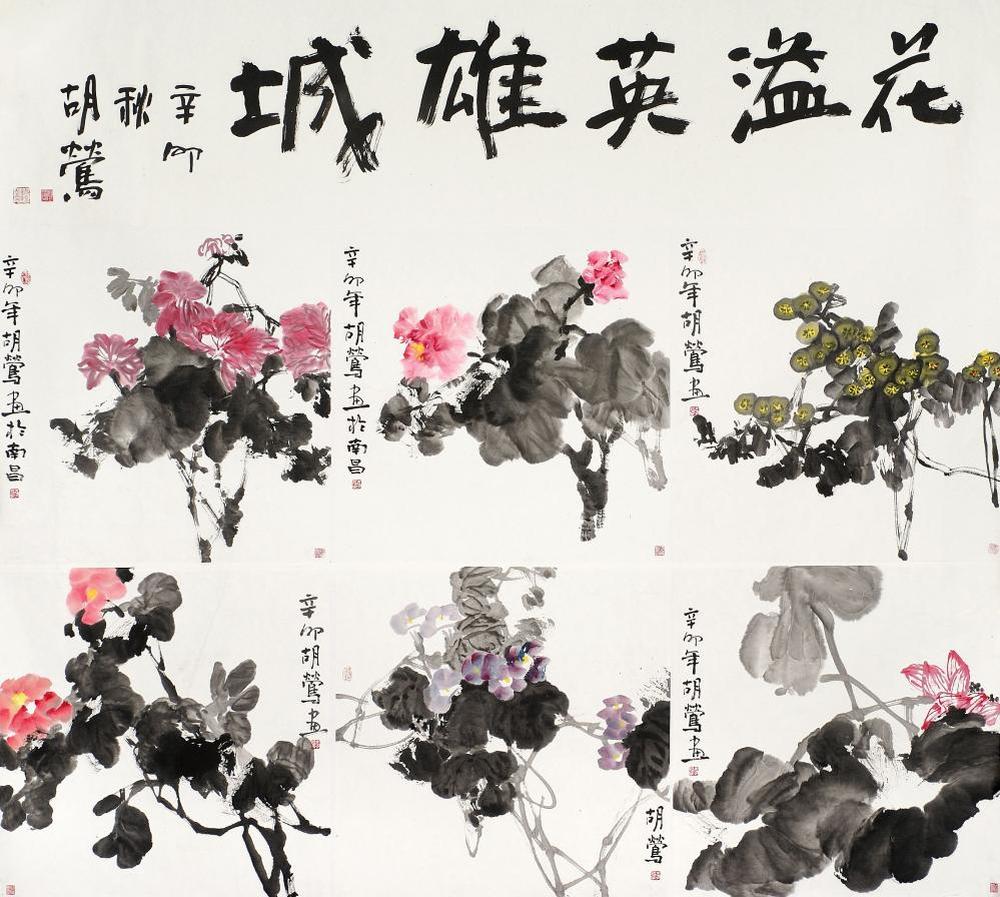 花溢英雄城
辛卯
秋
胡鶯
辛卯年胡鶯画
辛卯年胡鶯画於南昌
辛卯年胡鶯画於南昌
辛卯年胡鶯画
胡鶯
辛卯胡鶯画